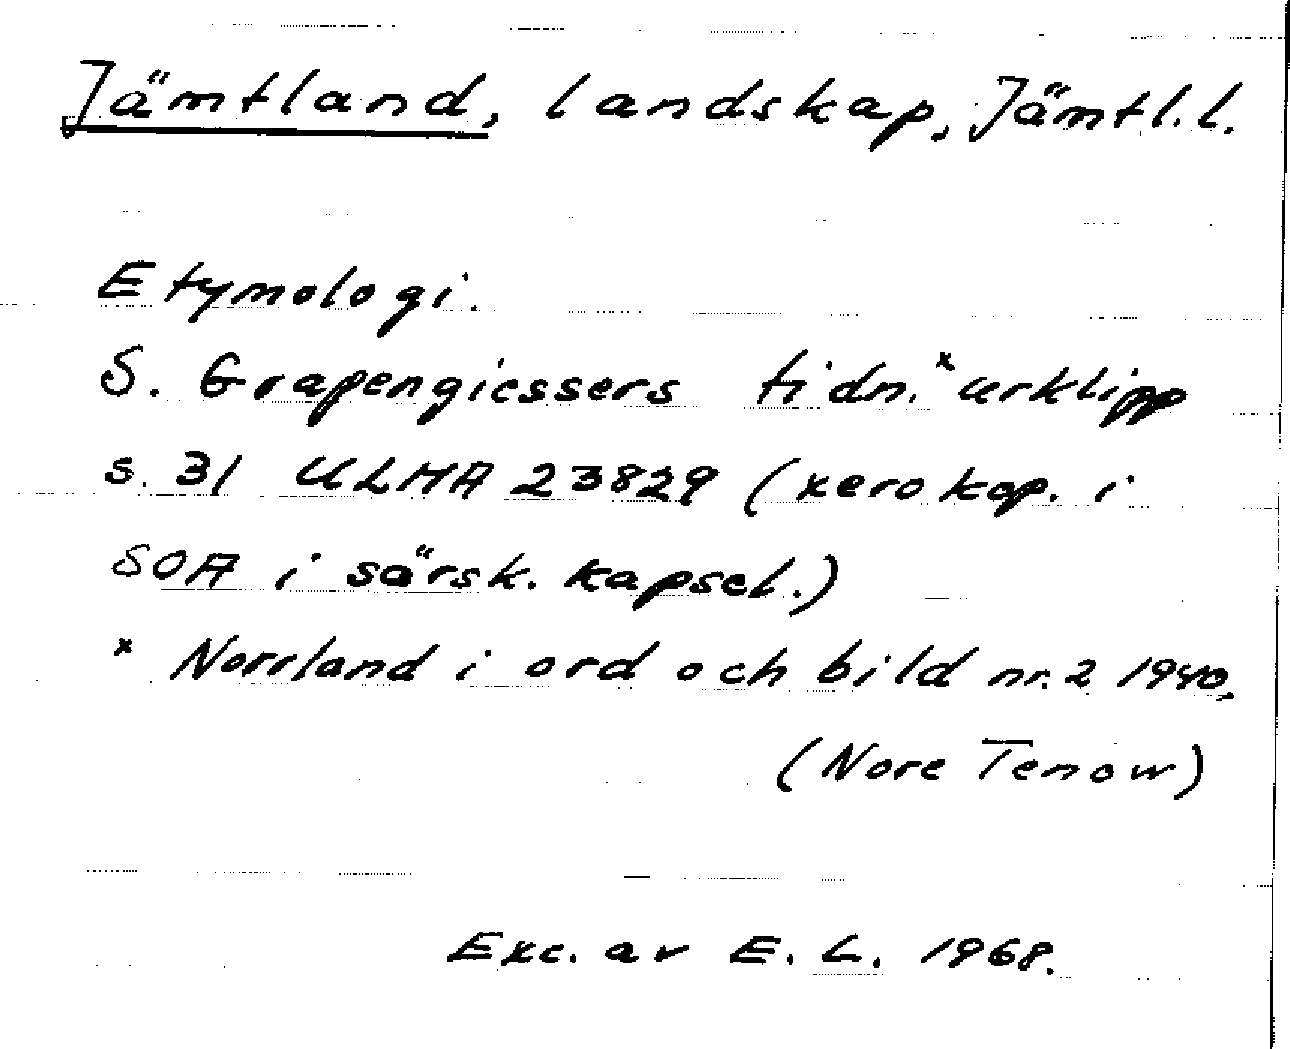 Jämtland, landskap, Jämtl.l.
Etymologi.
S. Grapengiessers tidn.ˣurklipp
s. 31 ULMA 23829 (xerokop. i
SOA i särsk. kapsel.)
ˣ Norrland i ord och bild nr. 2 1940.
(Nore Tenow)
Exc. av E. L. 1968.